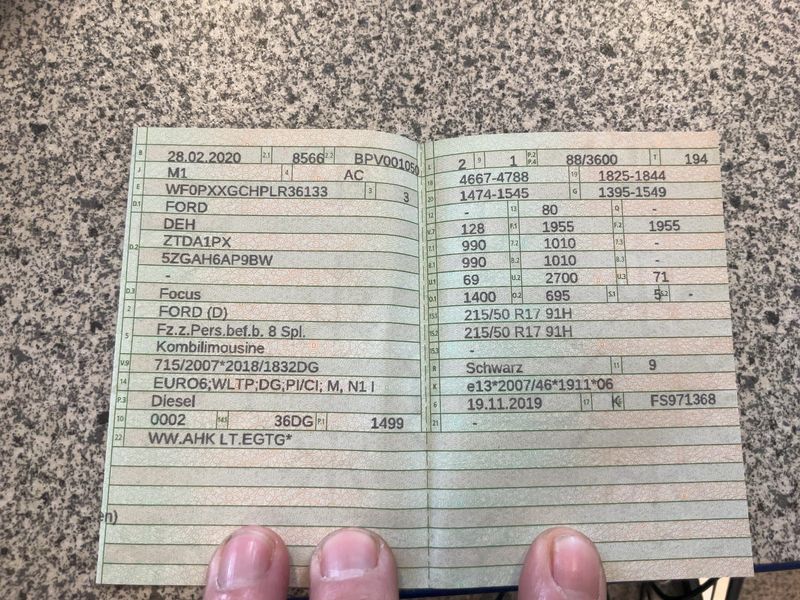 B 28.02.2020 2.1 8566 2.2 BPV001050
J M1 4 AC
E WF0PXXGCHPLR36133 3 3
D.1 FORD
DEH
D.2 ZTDA1PX
5ZGAH6AP9BW
-
D.3 Focus
2 FORD (D)
5 Fz.z.Pers.bef.b. 8 Spl.
Kombilimousine
V.9 715/2007*2018/1832DG
14 EURO6;WLTP;DG;PI/CI; M, N1 I
P.3 Diesel
10 0002 14.1 36DG P.1 1499
22 WW.AHK LT.EGTG*
en)
L 2 9 1 P.2 P.4 88/3600 T 194
18 4667-4788 19 1825-1844
20 1474-1545 G 1395-1549
12 - 13 80 Q -
V.7 128 F.1 1955 F.2 1955
7.1 990 7.2 1010 7.3 -
8.1 990 8.2 1010 8.3 -
U.1 69 U.2 2700 U.3 71
O.1 1400 O.2 695 S.1 5 S.2 -
15.1 215/50 R17 91H
15.2 215/50 R17 91H
15.3 -
R Schwarz 11 9
K e13*2007/46*1911*06
6 19.11.2019 17 K 16 FS971368
21 -